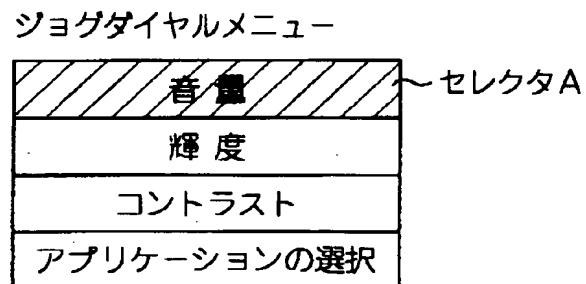 ジョグダイヤルメニュー
音量
セレクタA
輝度
コントラスト
アプリケーションの選択